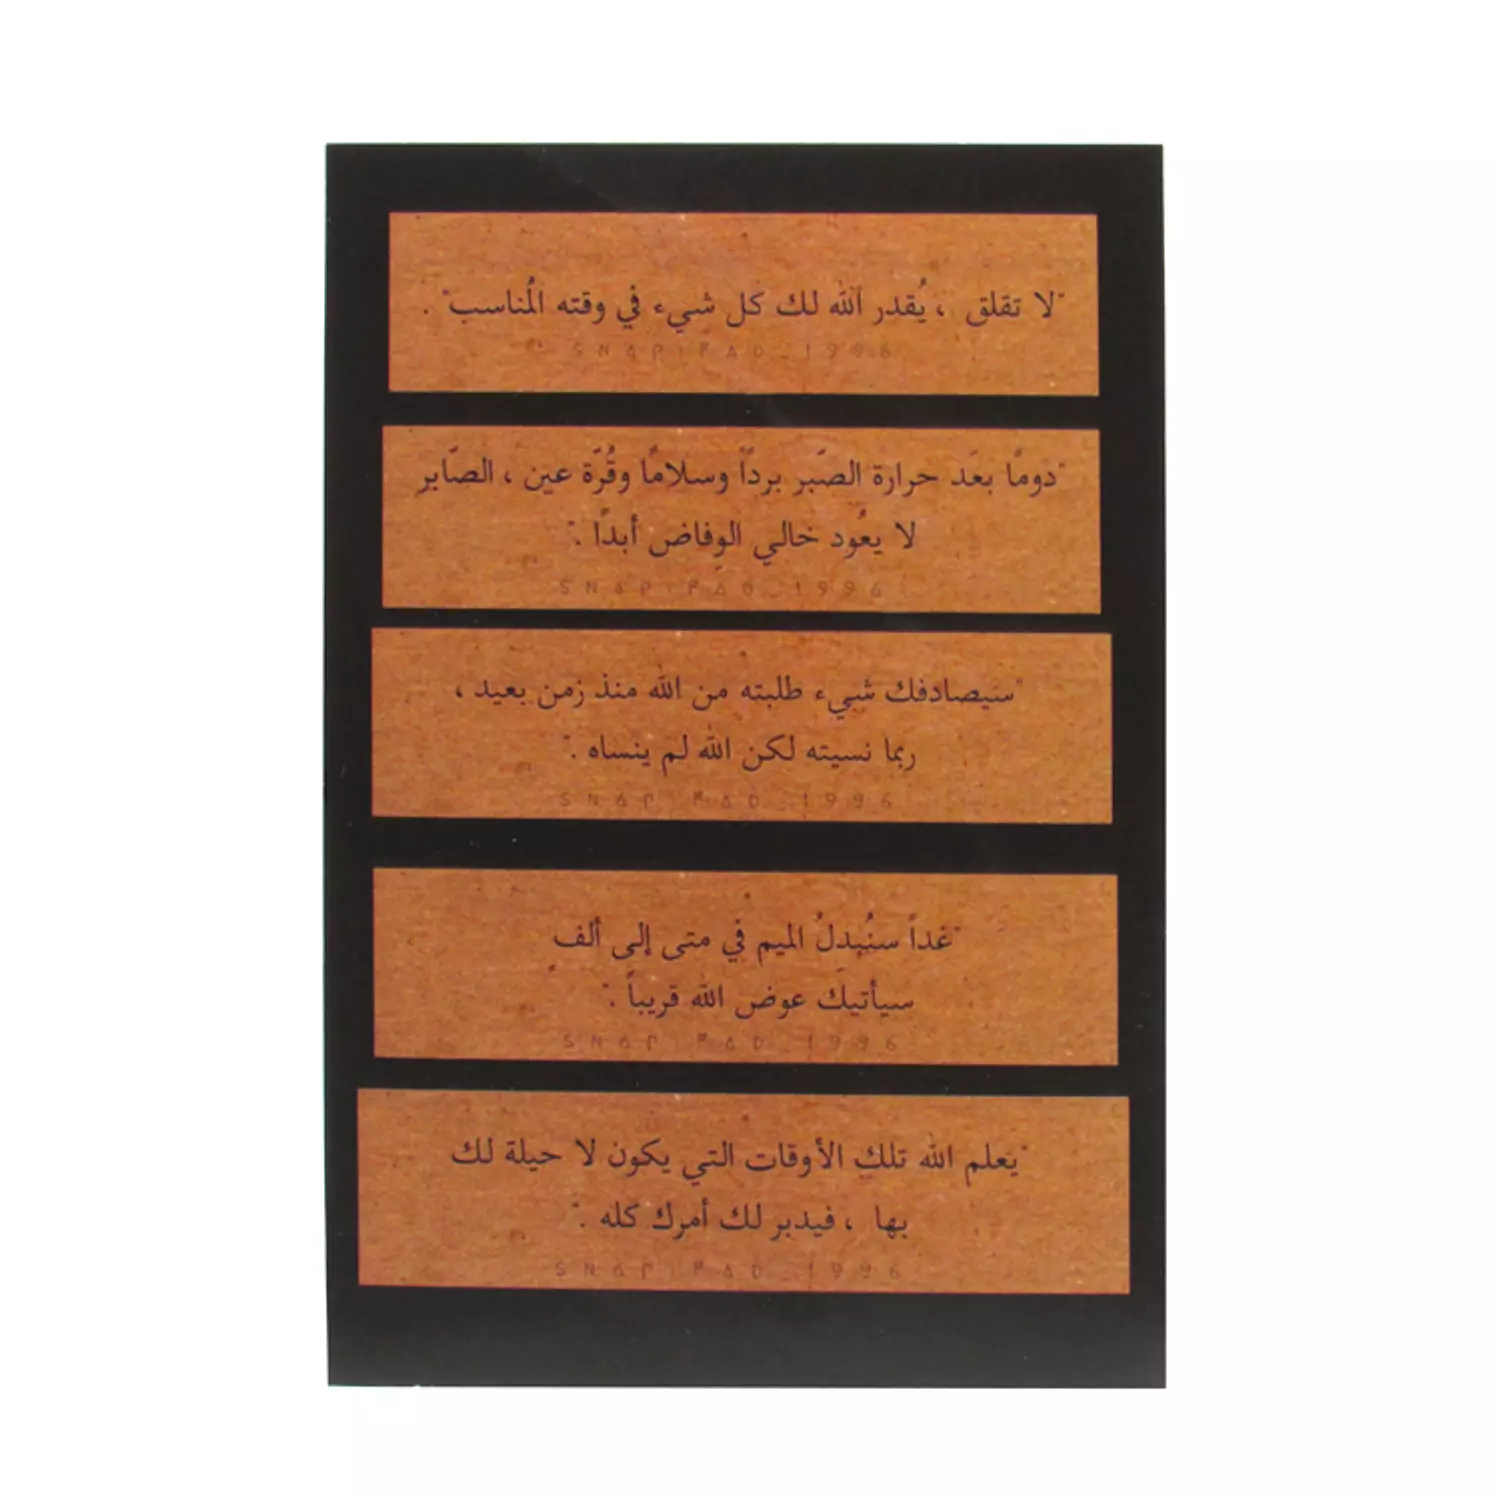 "لا تقلق ، يُقدر الله لك كل شيء في وقته المُناسب" .
SNAP:FAD_1996
"دومًا بعَد حرارة الصّبر برداً وسلامًا وقُرّة عين ، الصّابر
لا يعُود خالي الوِفاض أبدًا ."
SNAP:FAD_1996
"سيصادفك شيء طلبته من الله منذ زمن بعيد ،
ربما نسيته لكن الله لم ينساه ."
SNAP:FAD_1996
"غداً سنُبدِلُ الميم في متى إلى ألفٍ
سيأتيك عوض الله قريباً ."
SNAP:FAD_1996
"يَعلم الله تلك الأوقات التي يكون لا حيلة لك
بها ، فيدبر لك أمرك كله ."
SNAP:FAD_1996